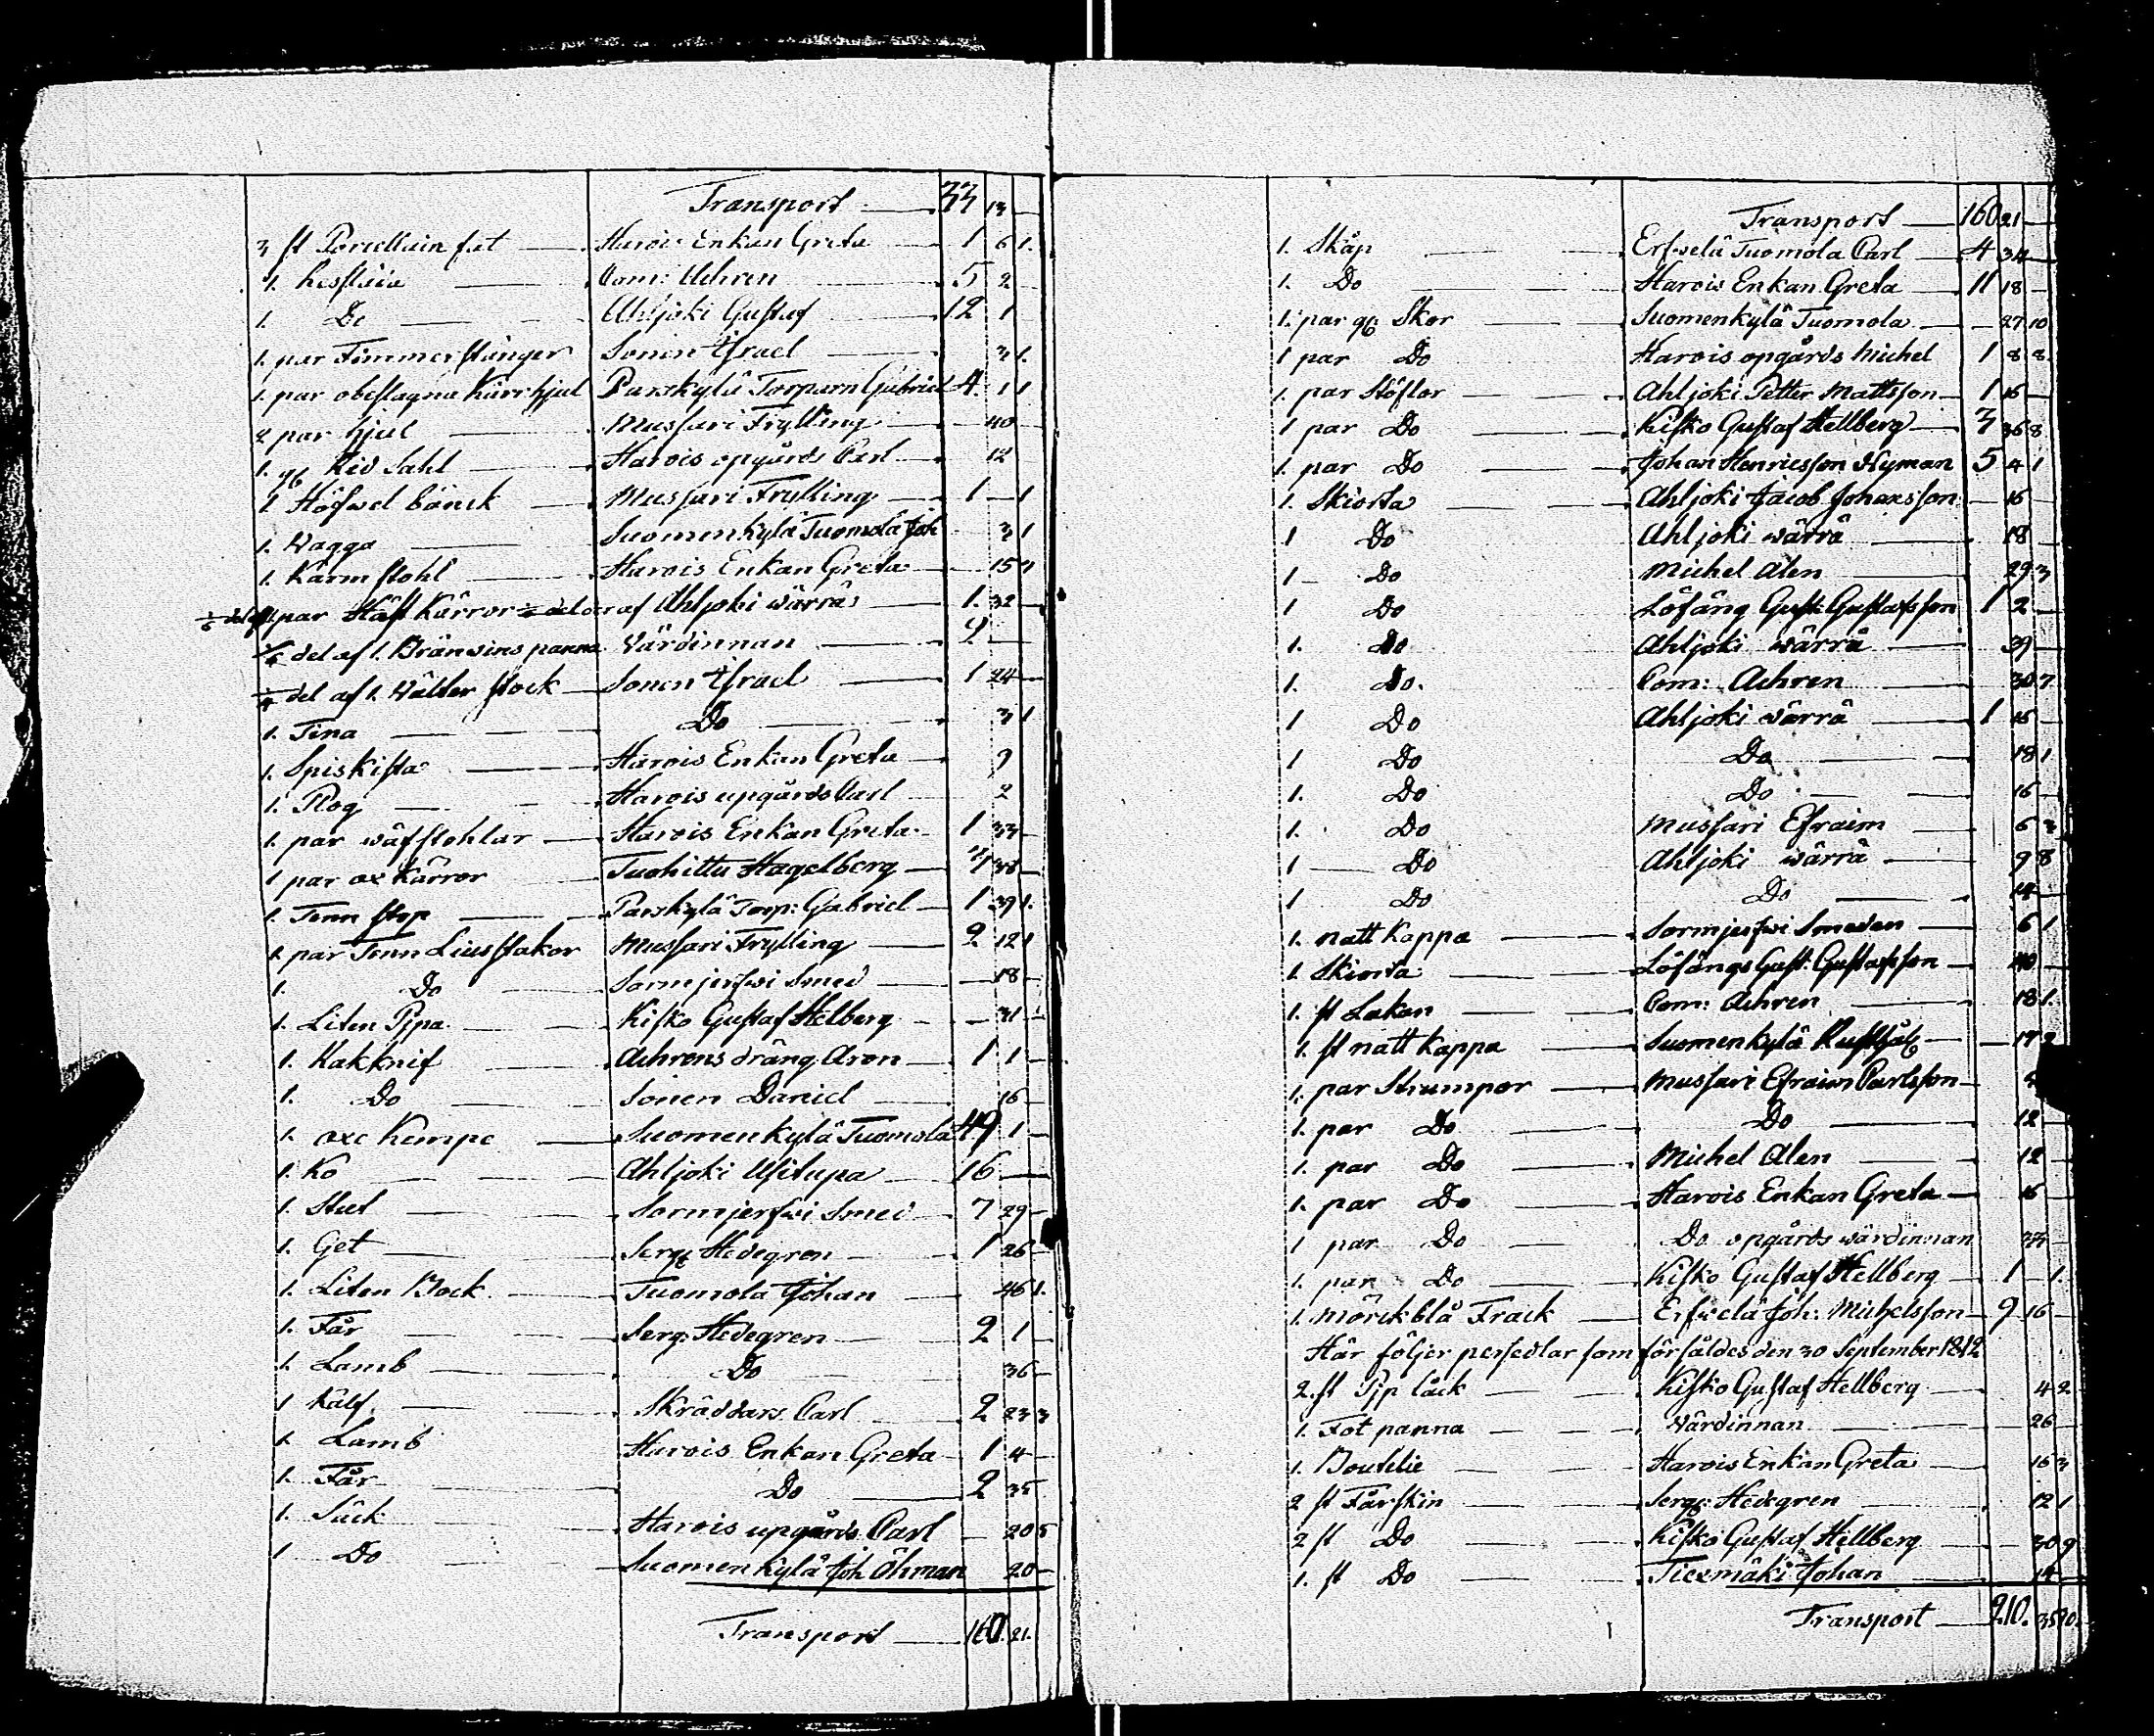 Transport — 77 13 —
3 st Porcellain fat — Harois Enkan Greta 1 6 1.
1. hesslåia — Com: Aehren — 5 2
1. Do — Ahljoki Gustaf — 12 1
1. par Timmer stånger Sonen Israel — 3 1.
1. par obeslagna Kärrhjul Parskylä Torparn Gabriel 4. 1 1
2 par hjul — Mussari Frylling — 40
1. gl Rid Sahl — Harois opgårds Carl — 12
1 Höfwel bänck — Mussari Frylling — 1 — 1
1. Wagga — Suomenkylä Tuomola Joh 3 1
1. Karmstohl — Harois Enkan Greta — 15
par Häst Kärror af Ahljoki wärrä — 1. 32 —
del af 1. Bränwins panna Värdinnan — 9 —
del af 1. Wälter stock — Sonen Israel — 1 24 —
1. Tina — Do — 3 1
1. Spiskista — Harois Enkan Greta — 9
1. Plog — Harois upgårds Carl — 2
1. par wäfstohlar — Harois Enkan Greta — 1 33 —
1 par ox Kärror — Tuohittu Hagelberg — 7 38 —
1. Tenn stop — Parskylä Torp: Gabriel — 1 39 1.
1. par Tenn Liusstakor Mussari Frylling — 2 12 1
1. Do — Sormjerfwi Smed — 18 —
1. Liten Pipa — Kisko Gustaf Helberg — 31
1. Hakknif — Aehrens dräng Aron — 1 1 —
1. Do — Sonen Daniel — 16 —
1. oxe Kempe — Suomenkylä Tuomola 49 1 —
1. Ko — Ahljoki Usitupa — 16 —
1. Stut — Sormjerfwi Smed — 7 29 —
1. Get — Serg: Hedegren — 1 26 —
1. Liten Bock — Tuomola Johan — 46 1.
1. Får — Serg: Hedegren — 2 1 —
1. Lamb — Do — 36 —
1 Kalf — Skräddars Carl — 2 23 3
1. Lamb — Harois Enkan Greta — 1 4 —
1. Får — Do — 2 35 —
1. Säck — Harois upgårds Carl — 20 5
1 Do — Suomenkylä Joh Öhman 20 —
Transport — 160 21.
Transport — 160 21 —
1. Skåp — Erfwelä Tuomola Carl — 4 34 —
1. Do — Harois Enkan Greta — 11 18 —
1. par gl Skor — Suomenkylä Tuomola — 27 10
1 par Do — Harois opgårds Michel 1 8 8.
1. par Stöflor — Ahljoki Petter Mattsson — 1 16 —
1 par Do — Kisko Gustaf Hellberg — 7 36 8
1. par Do — Johan Henricsson Nyman 5 4 1
1. Skiorta — Ahljoki Jacob Johansson — 16 —
1 Do — Ahljoki wärrä — 18
1 — Do — Michel Alen — 29 3
1 Do — Löfäng Gust: Gustafsson 1 2 —
1. Do — Ahljoki wärrä — 39 —
1. Do. — Com: Aehren — 30 7
1 Do — Ahljoki wärrä — 1 15 —
1 Do — Do — 18 1
1. Do — Do — 16 —
1. Do — Mussari Efraim — 6 3
1 — Do — Ahljoki wärrä — 9 8
1 Do — Do — 14 —
1. natt Kappa — Sormjerfwi Smeden — 6 1
1. Skiorta — Löfängs Gust: Gustafsson — 40 —
1. st Lakan — Com: Aehren — 18 1.
1. st natt Kappa — Suomenkylä — 17
1. par Strumpor — Mussari Efraim Carlsson —
1. par Do — Do — 12 —
1. par Do — Michel Alen — 12 —
1. par Do — Harois Enkan Greta — 16 —
1 par Do — Do opgårds wärdinnan 33 —
1. par Do — Kisko Gustaf Hellberg — 1 — 1.
1. mörckblå Frack — Erfwelä Joh: Michelsson — 9 16 —
Här följer persedlar som försåldes den 30 September 1812
2. st Pip läck — Kisko Gustaf Hellberg — 4 2
1. Fot panna — Wärdinnan — 26 —
1. Boutelie — Harois Enkan Greta — 16 3
2 st Fårskin — Serg: Hedegren — 12 1
2 st Do — Kisko Gustaf Hellberg — 30 9
1. st Do — Tiermäki Johan — 14 —
Transport — 210. 35 10.